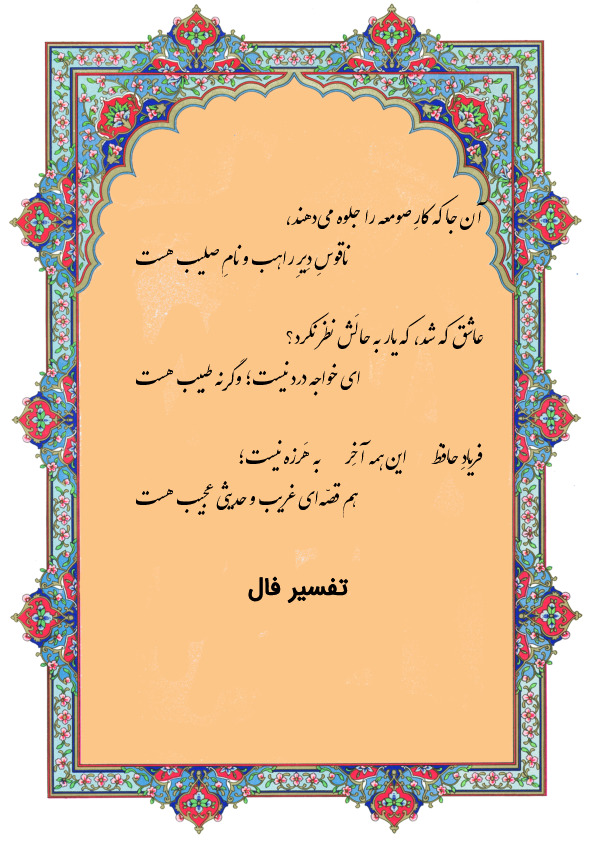 آن جا که کارِ صومعه را جلوه می‌دهند،
ناقوسِ دِیرِ راهب و نامِ صلیب هست
عاشق که شد، که یار به حالَش نظر نکرد؟
ای خواجه درد نیست؛ وگرنه طبیب هست
فریادِ حافظ این همه آخِر به هَرزه نیست؛
هم قصّه‌ای غریب و حدیثی عجیب هست
تفسیر فال